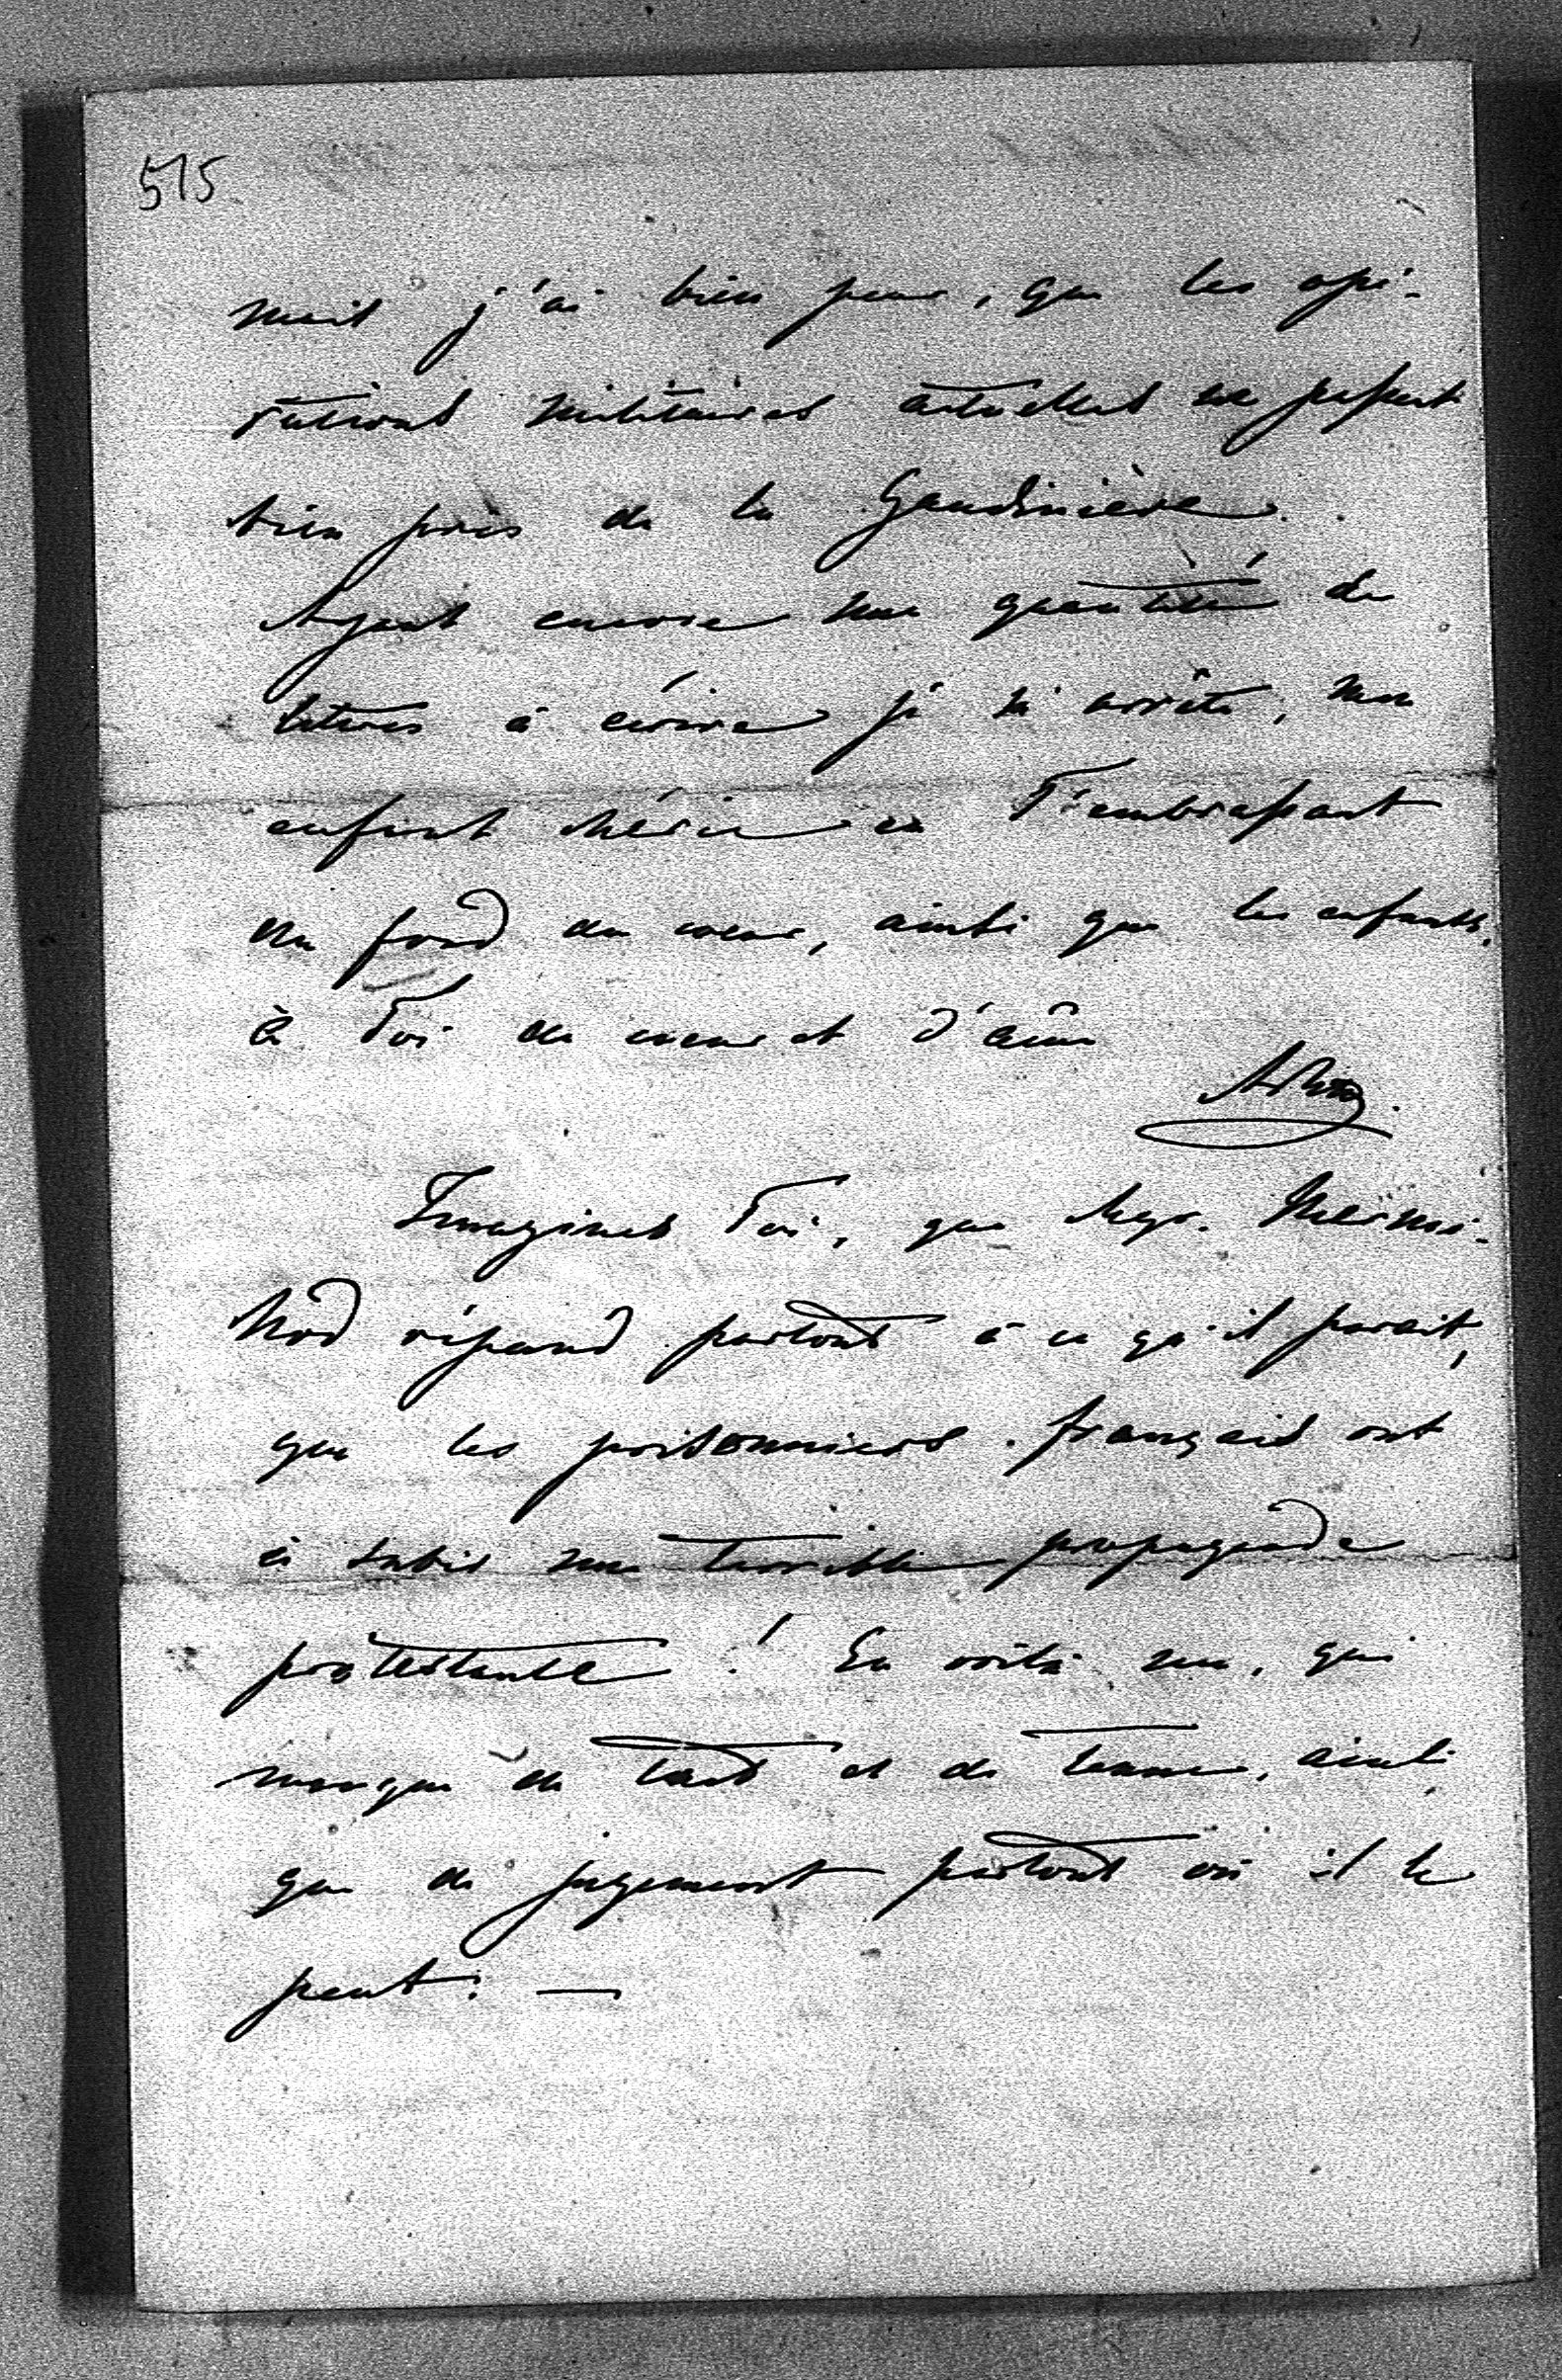 515
mais j'ai bien peur, que les opé-
rations militaires actuelles se passent
bien près de la Gaudinière.
Ayant encore une quantité de
lettres à écrire je m'arrête, mon
enfant chérie en T'embrassant
du fond du cœur, ainsi que les enfants.
à Toi de cœur et d'âme
Imagines Toi, que Mgr. Mermi-
llod répand partout à ce qu'il parait,
que les prisonniers français ont
à subir une terrible propagande
protestante! En voilà un, qui
manque de tact et de tenue, ainsi
que de jugement partout où il le
peut. —